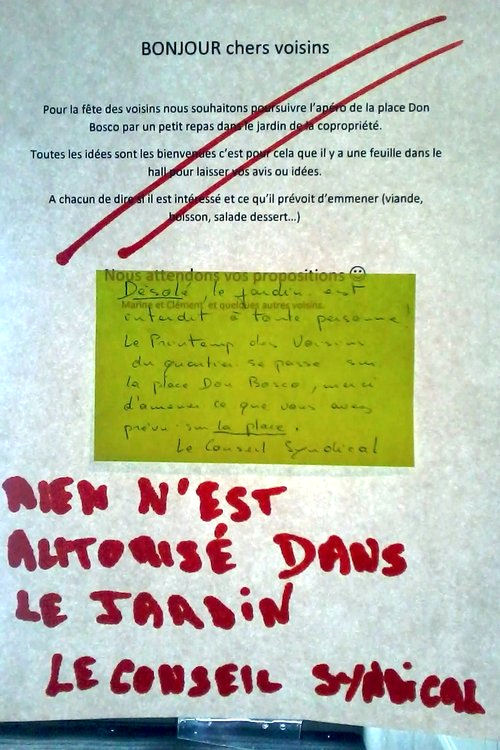 BONJOUR chers voisins
Pour la fête des voisins nous souhaitons poursuivre l'apéro de la place Don
Bosco par un petit repas dans le jardin de la copropriété.
Toutes les idées sont les bienvenues c'est pour cela que il y a une feuille dans le
hall pour laisser vos avis ou idées.
A chacun de dire si il est intéressé et ce qu'il prévoit d'emmener (viande,
boisson, salade dessert...)
Nous attendons vos propositions ☺
Marine et Clément et quelques autres voisins.
Désolé, le jardin est
interdit à toute personne !
Le Printemps des Voisins
du quartier se passe sur
la place Don Bosco, merci
d'amener ce que vous avez
prévu sur la place.
Le Conseil Syndical
RIEN N'EST
AUTORISÉ DANS
LE JARDIN
LE CONSEIL SYNDICAL